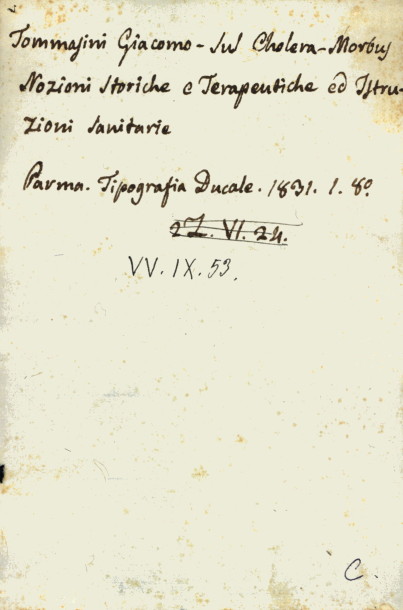 Tommasini Giacomo - Sul Cholera-Morbus
Nozioni Storiche e Terapeutiche ed Istru-
zioni Sanitarie
Parma. Tipografia Ducale. 1831. 1. 8º
2Z. VI. 24.
VV. IX. 53.
C.